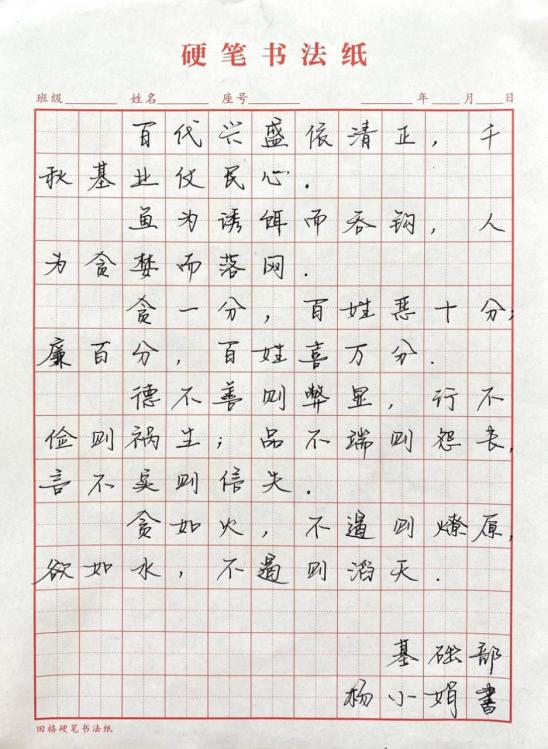 硬笔书法纸
班级 姓名 座号 年 月 日
百代兴盛依清正，千
秋基业仗民心.
鱼为诱饵而吞钩，人
为贪婪而落网.
贪一分，百姓恶十分；
廉百分，百姓喜万分.
德不善则弊显，行不
俭则祸生；品不端则怨长，
言不实则信失.
贪如火，不遏则燎原，
欲如水，不遏则滔天.
基础部
杨小娟书
田格硬笔书法纸